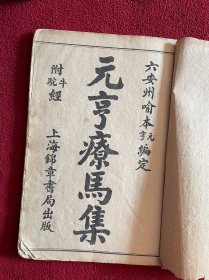 六安州喻本元亨編定
元亨療馬集
附牛駝經
上海錦章書局出版